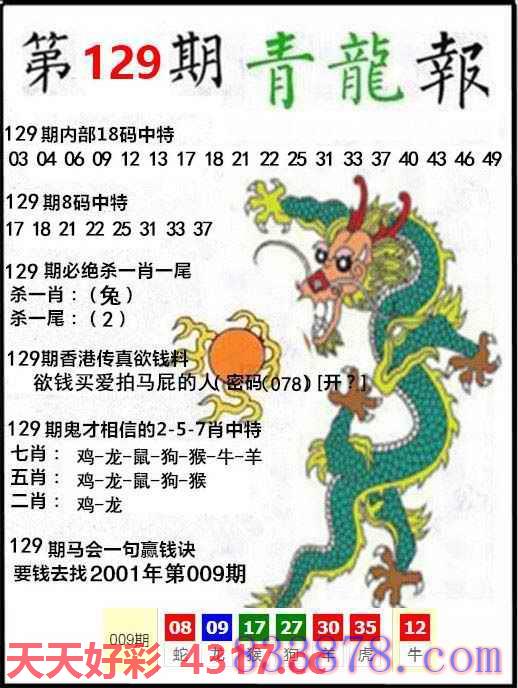 第129期青龍報
129期内部18码中特
03 04 06 09 12 13 17 18 21 22 25 31 33 37 40 43 46 49
129期8码中特
17 18 21 22 25 31 33 37
129期必绝杀一肖一尾
杀一肖：（兔）
杀一尾：（2）
129期香港传真欲钱料
欲钱买爱拍马屁的人（密码（078）[开？]
129期鬼才相信的2-5-7肖中特
七肖： 鸡-龙-鼠-狗-猴-牛-羊
五肖： 鸡-龙-鼠-狗-猴
二肖： 鸡-龙
129期马会一句赢钱诀
要钱去找2001年第009期
009期 08 09 17 27 30 35 12
蛇 龙 猴 狗 羊 虎 牛
天天好彩 4317.cc